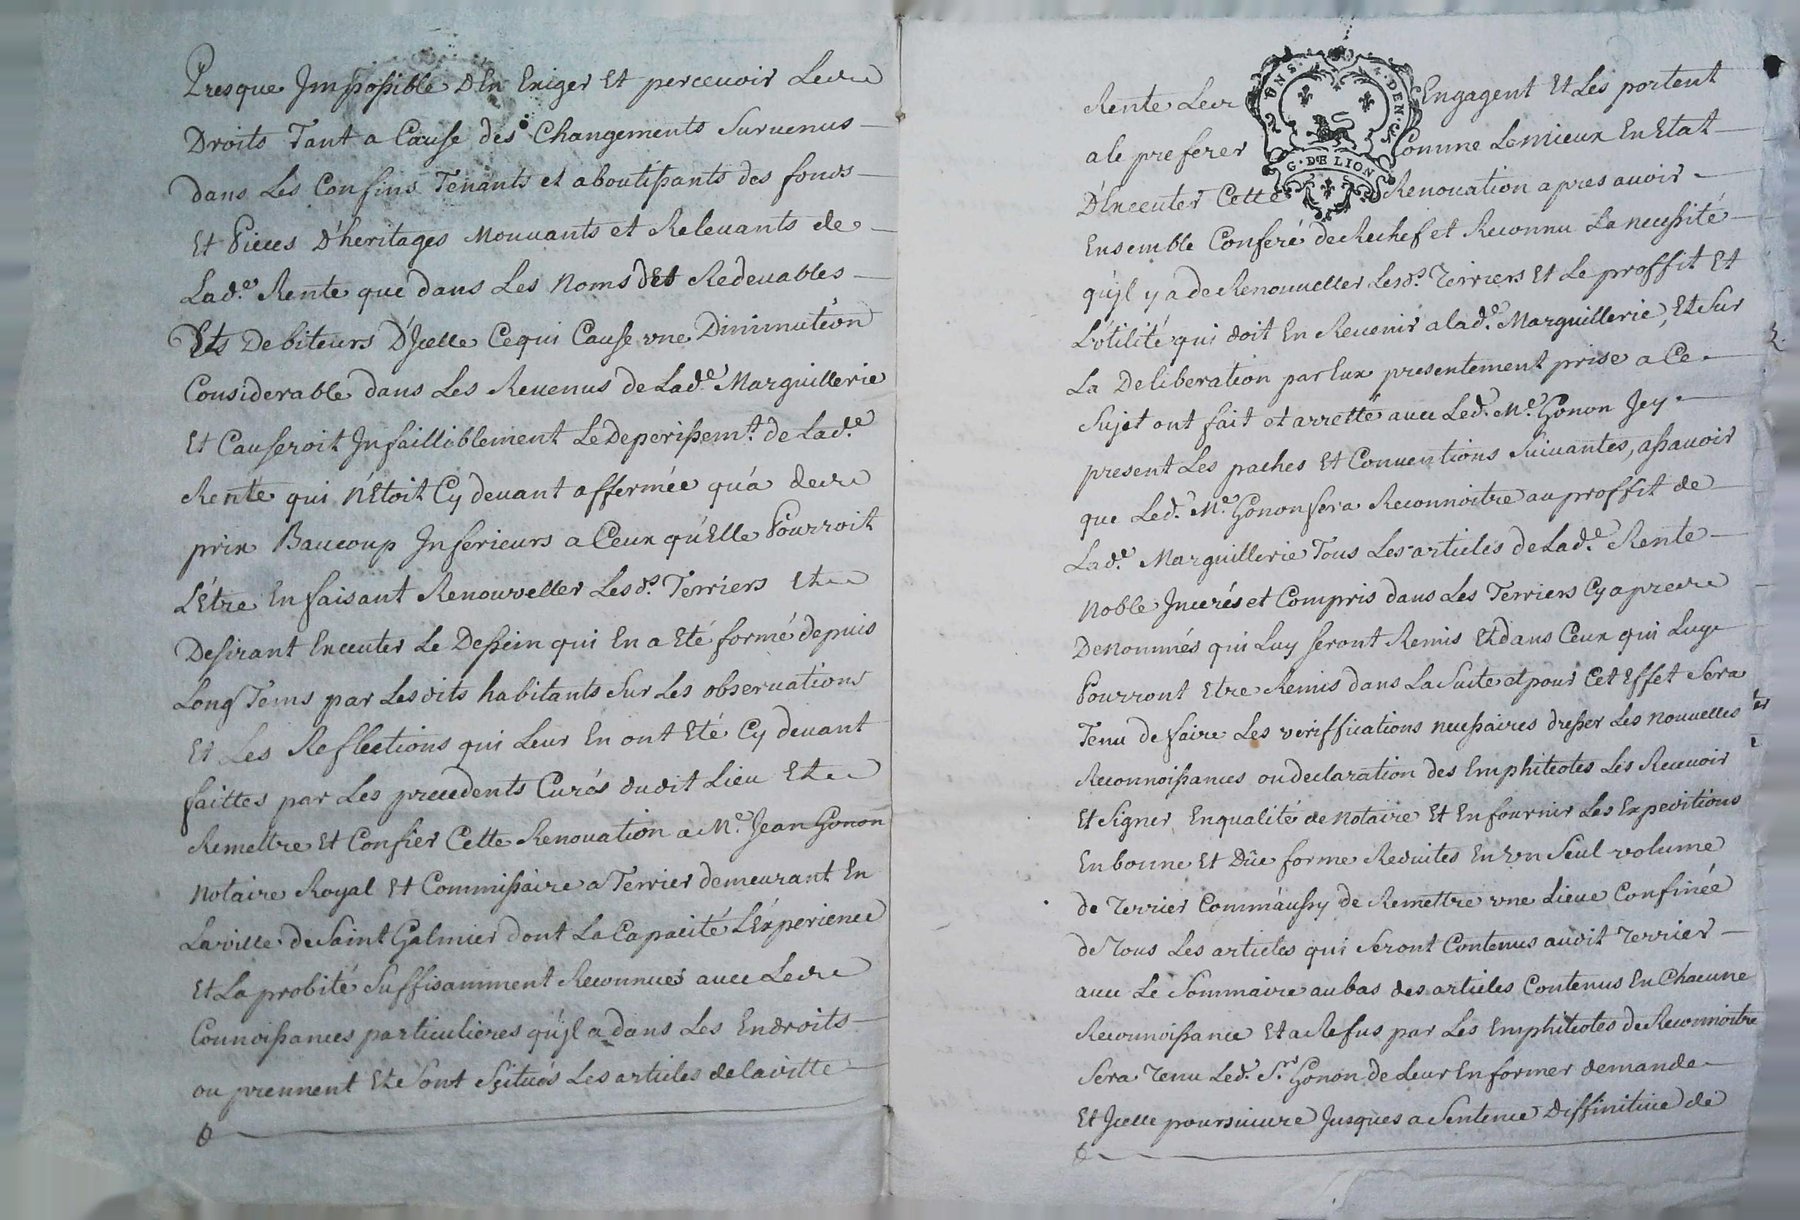 Presque Impossible D'En Exiger Et percevoir Les
Droits Tant a Cause des Changements Survenus
dans Les Confins Tenants et aboutissants des fonds
Et Pieces D'heritages Mouvants et Relevants de
Lad.e Rente que dans Les Noms Des Redevables
Ets Debiteurs D'Jcelle Cequi Cause vne Diminution
Considerable dans Les Revenus de Lad.e Marguillerie
Et Causeroit Jnfailliblement Le Deperissem.t de Lad.e
Rente qui N'Etoit Cy devant affermée qu'á des
prix Baucoup Jnferieurs a Ceux qu'Elle Pourroit
L'Etre En faisant Renouveller Lesd.s Terriers Et
Desirant Executer Le Dessein qui En a Eté formé depuis
Long Tems par Lesdits habitants Sur Les observations
Et Les Reflections qui Leur En ont Eté Cy devant
faittes par Les precedents Curés dudit Lieu Et
Remettre Et Confier Cette Renovation a M.e Jean Gonon
Notaire Royal Et Commissaire a Terrier demeurant En
La ville de Saint Galmier dont La Capacité L'Experience
Et La probité Suffisamment Reconnues avec Les
Connoissances particulieres qu'jl a dans Les Endroits
ou prennent Et Sont Scitués Les articles de laditte
Rente Les Engagent Et Les portent
a le preferer Comme Le mieux En Etat
D'Executer Cette Renovation apres avoir
Ensemble Conferé de Rechef et Reconnu La necessité
qu'jl y a de Renouveller Lesd.s Terriers Et Le proffit Et
L'utilité qui doit En Revenir a lad.e Marguillerie, Et Sur
La Deliberation par Eux presentement prise a Ce
Sujet ont fait et arretté avec Led. M.e Gonon Jcy
present Les paches Et Conventions Suivantes, assavoir
que Led. M.e Gonon fera Reconnoitre au proffit de
Lad.e Marguillerie Tous Les articles de Lad.e Rente
Noble Jncerés et Compris dans Les Terriers Cy apres
Denommés qui Luy seront Remis Et dans Ceux qui Luy
Pourront Etre Remis dans La Suite et pour Cet Effet Sera
Tenu de faire Les veriffications necessaires dresser Les nouvelles
Reconnoissances ou declaration des Emphiteotes Les Recevoir
Et Signer En qualité de Notaire Et En fournir Les Expeditions
En bonne Et Dûe forme Reduites En vn Seul volume
de Terrier Comm'aussy de Remettre vne Lieve Confinée
de Tous Les articles qui Seront Contenus audit Terrier
avec Le Sommaire au bas des articles Contenus En Chacune
Reconnoissance Et a Refus par Les Emphiteotes de Reconnoitre
Sera Tenu Led. S.r Gonon de Leur En former demande
Et Jcelle poursuivre Jusques a Sentence Diffinitive de
G. DE LION